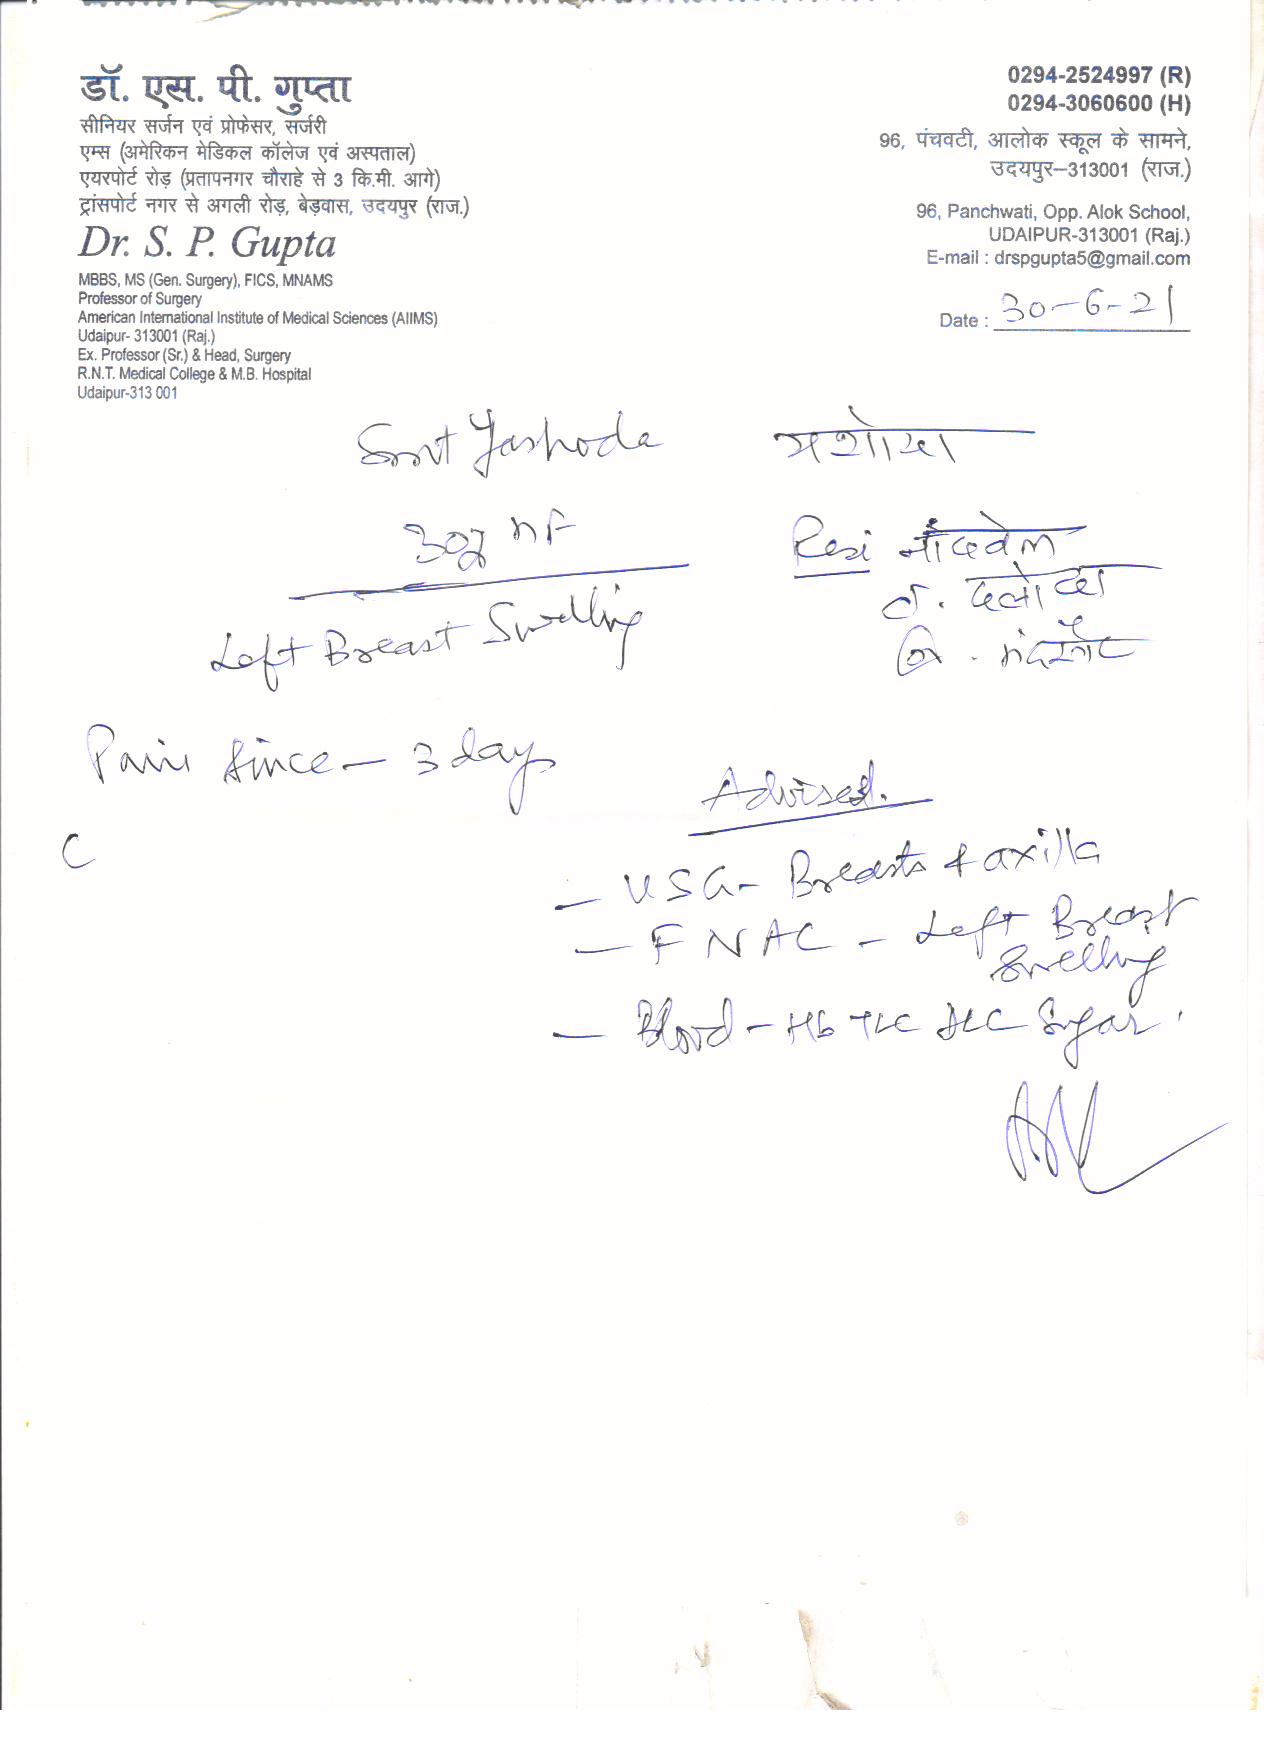 डॉ. एस. पी. गुप्ता
सीनियर सर्जन एवं प्रोफेसर, सर्जरी
एम्स (अमेरिकन मेडिकल कॉलेज एवं अस्पताल)
एयरपोर्ट रोड़ (प्रतापनगर चौराहे से 3 कि.मी. आगे)
ट्रांसपोर्ट नगर से अगली रोड़, बेड़वास, उदयपुर (राज.)
Dr. S. P. Gupta
MBBS, MS (Gen. Surgery), FICS, MNAMS
Professor of Surgery
American International Institute of Medical Sciences (AIIMS)
Udaipur- 313001 (Raj.)
Ex. Professor (Sr.) & Head, Surgery
R.N.T. Medical College & M.B. Hospital
Udaipur-313 001
0294-2524997 (R)
0294-3060600 (H)
96, पंचवटी, आलोक स्कूल के सामने,
उदयपुर–313001 (राज.)
96, Panchwati, Opp. Alok School,
UDAIPUR-313001 (Raj.)
E-mail : drspgupta5@gmail.com
Date : 30-6-21
Smt Yashoda यशोदा
Resi नाँदवेल
त. दलोदा
Left Breast Swelling
Pain since – 3 days
C
Advised.
– USG- Breasts & axilla
– FNAC – Left Breast
Swelling
– Blood – Hb TLC DLC Sugar.